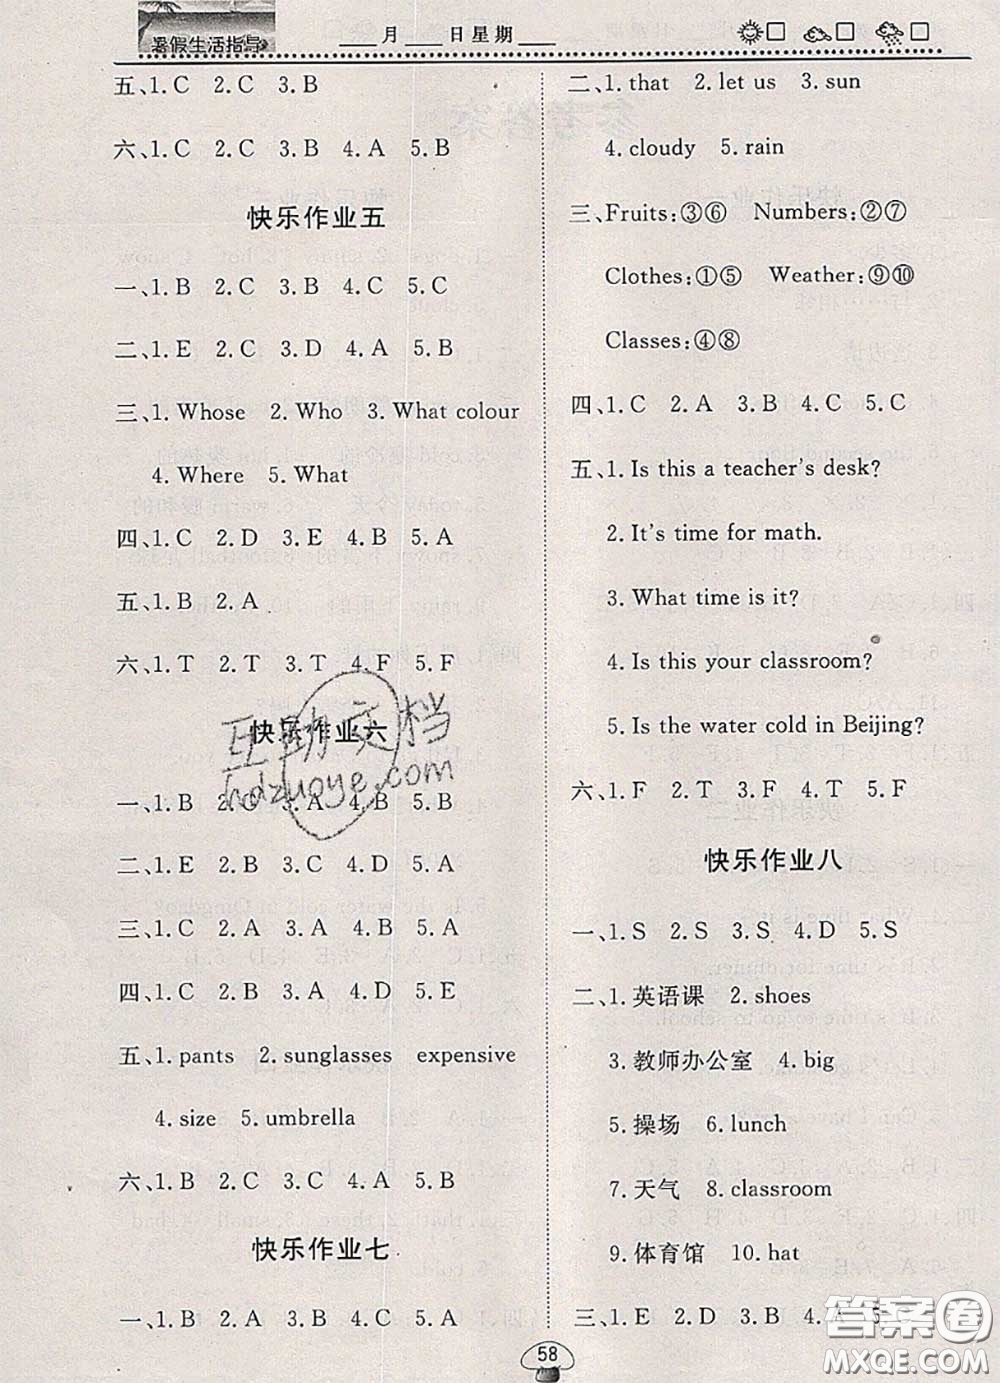 暑假生活指导
___月___日星期___
五、1.C 2.C 3.B
六、1.C 2.C 3.B 4.A 5.B
快乐作业五
一、1.B 2.C 3.B 4.C 5.C
二、1.E 2.C 3.D 4.A 5.B
三、1. Whose 2. Who 3. What colour
4. Where 5. What
四、1.C 2.D 3.E 4.B 5.A
五、1.B 2.A
六、1.T 2.T 3.T 4.F 5.F
快乐作业六
一、1.B 2.C 3.A 4.B 5.B
二、1.E 2.B 3.C 4.D 5.A
三、1.C 2.A 3.A 4.B 5.A
四、1.C 2.B 3.A 4.D 5.E
五、1. pants 2. sunglasses expensive
4. size 5. umbrella
六、1.B 2.C 3.C 4.A 5.B
快乐作业七
一、1.B 2.A 3.A 4.C 5.A
二、1. that 2. let us 3. sun
4. cloudy 5. rain
三、Fruits:③⑥ Numbers:②⑦
Clothes:①⑤ Weather:⑨⑩
Classes:④⑧
四、1.C 2.A 3.B 4.C 5.C
五、1. Is this a teacher's desk?
2. It's time for math.
3. What time is it?
4. Is this your classroom?
5. Is the water cold in Beijing?
六、1.F 2.T 3.F 4.T 5.F
快乐作业八
一、1.S 2.S 3.S 4.D 5.S
二、1.英语课 2. shoes
3.教师办公室 4. big
5.操场 6. lunch
7.天气 8. classroom
9.体育馆 10. hat
三、1.E 2.D 3.B 4.A 5.C
58
互动文档
hdzuoye.com
答案圈
MXQE.COM